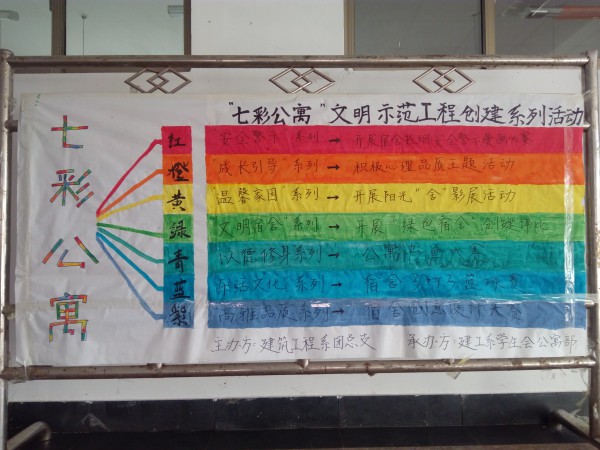 七彩公寓
"七彩公寓"文明示范工程创建系列活动
红 "安全警示"系列 → 开展宿舍
橙 "成长引导"系列 → 积极心理品质主题活动
黄 "温馨家园"系列 → 开展阳光"舍"影展活动
绿 "文明宿舍"系列 → 开展"绿色宿舍"创建评比
青 以德修身系列 → 公寓
蓝 乐活文化系列 → 宿舍3对3篮球赛
紫 高雅品质系列 → 宿舍创意设计大赛
主办方:建筑工程系团总支 承办方:建工系学生会公寓部